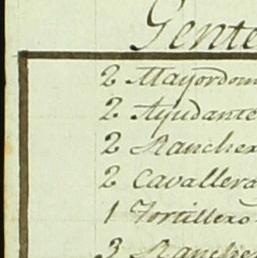 Gente
2 Mayordom
2 Ayudante
2 Ranchero
2 Cavallera
1 Tortillero
3 Ranche